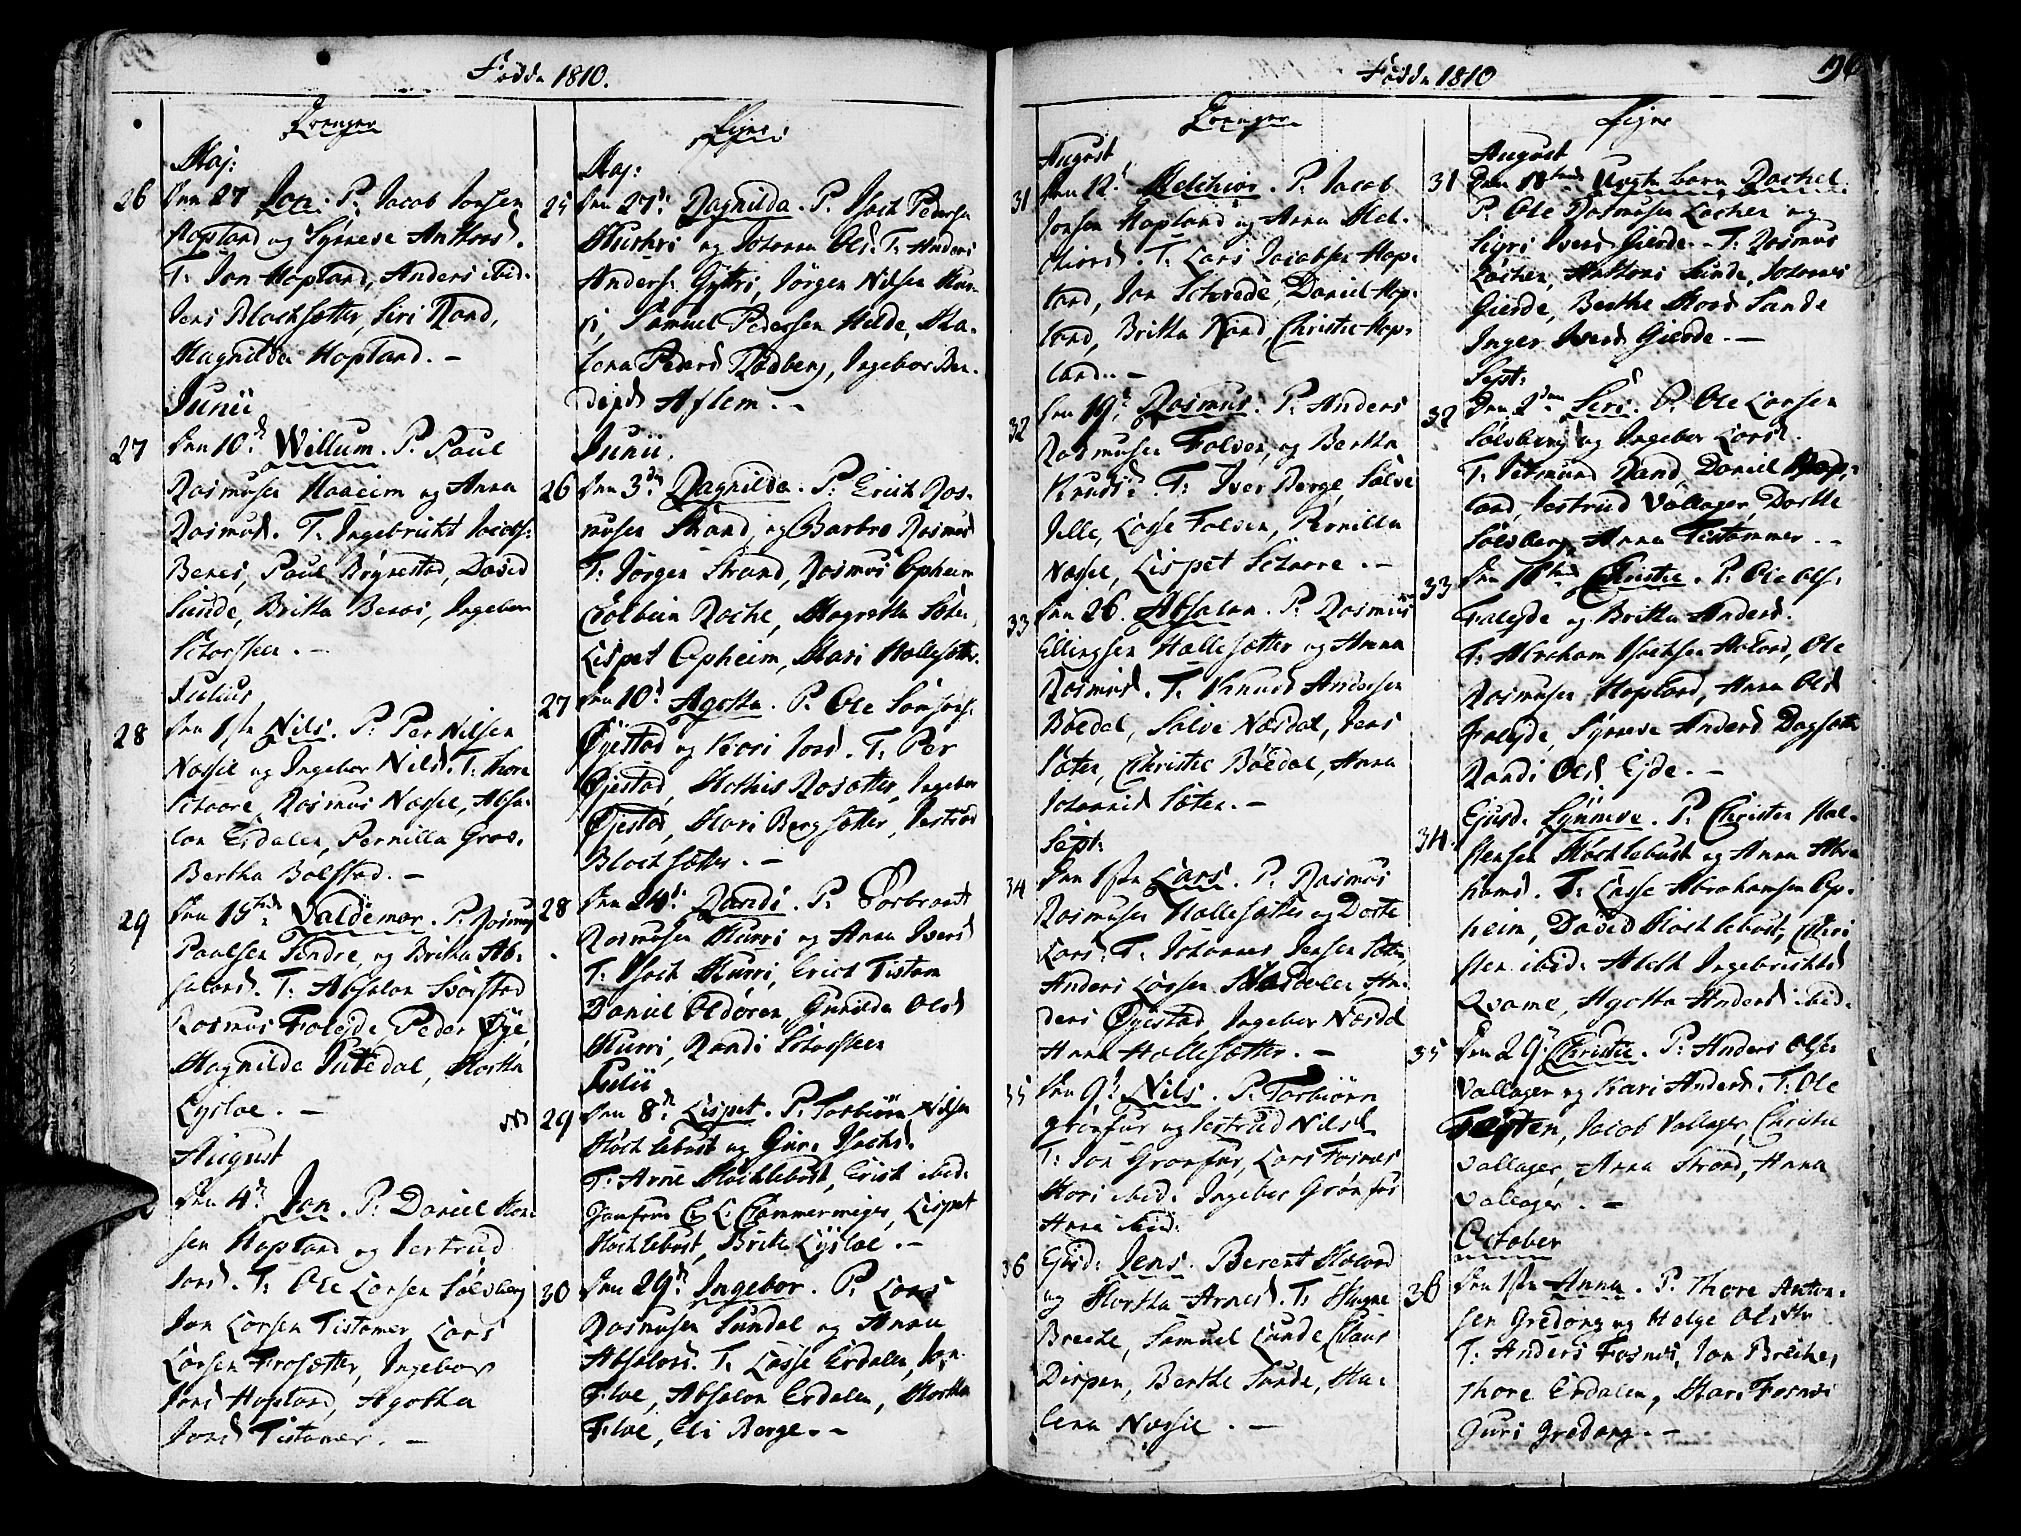 Fødde 1810.
Drenger
Maj:
26 Den 27 Jon. P: Jacob Jonsen
Hopland og Synneve Anthons d.
T: Jon Hopland, Anders ibid.
Jens Blochsætter, Siri Rand,
Magnilda Hopland. -
Junii
27 Den 10d Willum. P. Paul
Rasmusen Haaeim og Anna
Rasmusd. T. Ingebricht Jacobs:
Benes, Paul Rygnestad, David
Sunde, Britha Benes, Ingebor
Staarsteen. -
Julius
28 Den 1ste Nils. P: Per Nilsen
Næssie og Ingebor Nilsd. T: Thore
Schaare, Rasmus Næsse, Absa-
lon Erdalen, Pernilla Gros,
Bertha Bolstad. -
29 Den 15de Valdemar. P. Rasmus
Paulsen Tendre, og Britha Ab-
salonsd. T. Absalon Svorstad
Rasmus Faleide, Peder Øye,
Magnilde Sutedal, Martha
Lysloe. -
August
Den 4d Jon. P: Daniel Han-
sen Hopland og Jertrud
Jonsd. T. Ole Larsen Sølvberg
Jon Larsen Tistamer, Lars
Larsen Frosætter, Ingebor
Jonsd Hopland, Agotha
Jonsd Tistamer. -
Piger
Maj:
25 Den 27d Ragnilda. P. Isach Peders
Murhri og Johanna Olsd. T. Anders
Anders: Gyttri, Jørgen Nilsen Mur-
ri, Samuel Pedersen Helde, Ma-
lena Pedersd Rødberg, Ingebor Ben-
dixd Aflem. -
Junii.
26 Den 3de Ragnilda. P: Erich Ras-
musen Strand, og Barbro Rasmusd
T: Jørgen Strand, Rasmus Opheim
Colbein Roche, Magretha Søten,
Lispet Opheim, Mari Hallesætter.
27 Den 10d Agotha. P. Ole Simons:
Øyestad og Kari Jonsd. T: Per
Øjestad, Mathis Rosætter, Ingebor
Øjestad, Mari Bergsætter, Jertrud
Blochsætter. -
28 Den 24d Randi. P: Torbrant
Rasmusen Murri og Anna Iversd
T: Isach Murri, Erich Tistam
Daniel Oldøren, Gunilda Olsd
Murri, Randi Staarsteen
Julii
29 Den 8d Lispet. P: Torbiørn Nilsen
Møchlebust og Guri Isachsd.
T. Arne Møchlebust, Erich ibid:
Jomfrue C. L. Cammermeyer, Lispet
Møchlebust, Brite Lysloe. -
30 Den 29d Ingebor. P. Lars
Rasmusen Sundal og Anna
Absalonsd. T. Lasse Erdalen, Jon
Floe, Absalon Erdalen, Martha
Floe, Eli Berge. -
Fødde 1810
196
Drenger
August
31 Den 12d Melchior. P. Jacob
Jonsen Hopland og Anna Mel-
chiorsd. T. Lars Jacobsen Hop-
land, Jon Schrede, Daniel Hop-
land, Britha Rand, Christie Hop-
land. -
32 Den 19d Rasmus. P: Anders
Rasmusen Folven, og Bertha
Knudsd. T. Iver Berge, Salve
Jelle, Lasse Folven, Pernilla
Næsse, Lispet Schaare. -
33 Den 26. Absalon. P. Rasmus
Ellingsen Hallesætter og Anna
Rasmusd. T. Knud Andersen
Bøedal, Salve Næsdal, Jens
Søten, Christie Bøedal, Anna
Johannisd Søten. -
Sept:
34 Den 1ste Lars. P. Rasmus
Rasmusen Hallesætter og Dorte
Larsd: T: Johannes Jensen Søten
Anders Larsen Næsdalen An-
ders Øyestad, Ingebor Næsdal
Anna Hallesætter. -
35 Den 9d Nils. P. Torbiørn
Grønfur og Jertrud Nilsd
T. Jon Grønfur, Lars Fosnæs
Mari ibid. Ingebor Grønfur
Anna ibid.
36 Ejusd: Jens. Berent Molard
og Martha Arnesd. T. Magne
Breche, Samuel Lunde, Claus
Dispen, Berthe Sunde, Ma-
lena Næssie. -
Piger
August
31 Den 18de Uægte barn Rachel.
P. Ole Rasmusen Locher og
Sigri Iversd Gierde. T: Rasmus
Locher, Anthoni Sunde, Johannes
Gierde, Berthe Marsd Sande
Inger Iversd Gierde. -
Sept:
32 Den 2den Seri. P. Ole Larsen
Sølvberg og Ingebor Larsd.
T. Sidmund Rand, Daniel Hop-
land, Jertrud Vallager, Dorthe
Sølvberg, Anna Tistammer. -
33 Den 16de Christie. P. Ole Ols:
Faleyde og Britha Andersd.
T. Abraham Isachsen Aaland, Ole
Rasmusen Hopland, Anna Olsd
Faleyde, Synneve Andersd Dagsætter
Randi Olsd Ejde. -
34. Ejusd. Synneve. P. Christen Hal-
stensen Møchlebust og Anna Abra
hamsd. T. Lasse Abrahamsen Op-
heim, David Møchlebust, Chri
sten ibid: Aleth Ingebrichtsd
Qvame, Agotha Andersd ibid.
35 Den 29d Christie. P: Anders Olsen
Vallager og Kari Andersd. T. Ole
Tæisten, Jacob Vallager, Christie
Vallager, Anna Strand, Anna
Vallager. -
October
36 Den 1ste Anna. P. Thore Anton-
sen Grødong og Helge Olsdtr
T: Anders Fosnæs, Jon Breche,
Thore Erdalen, Mari Fosnæs
Guri Grødong. -